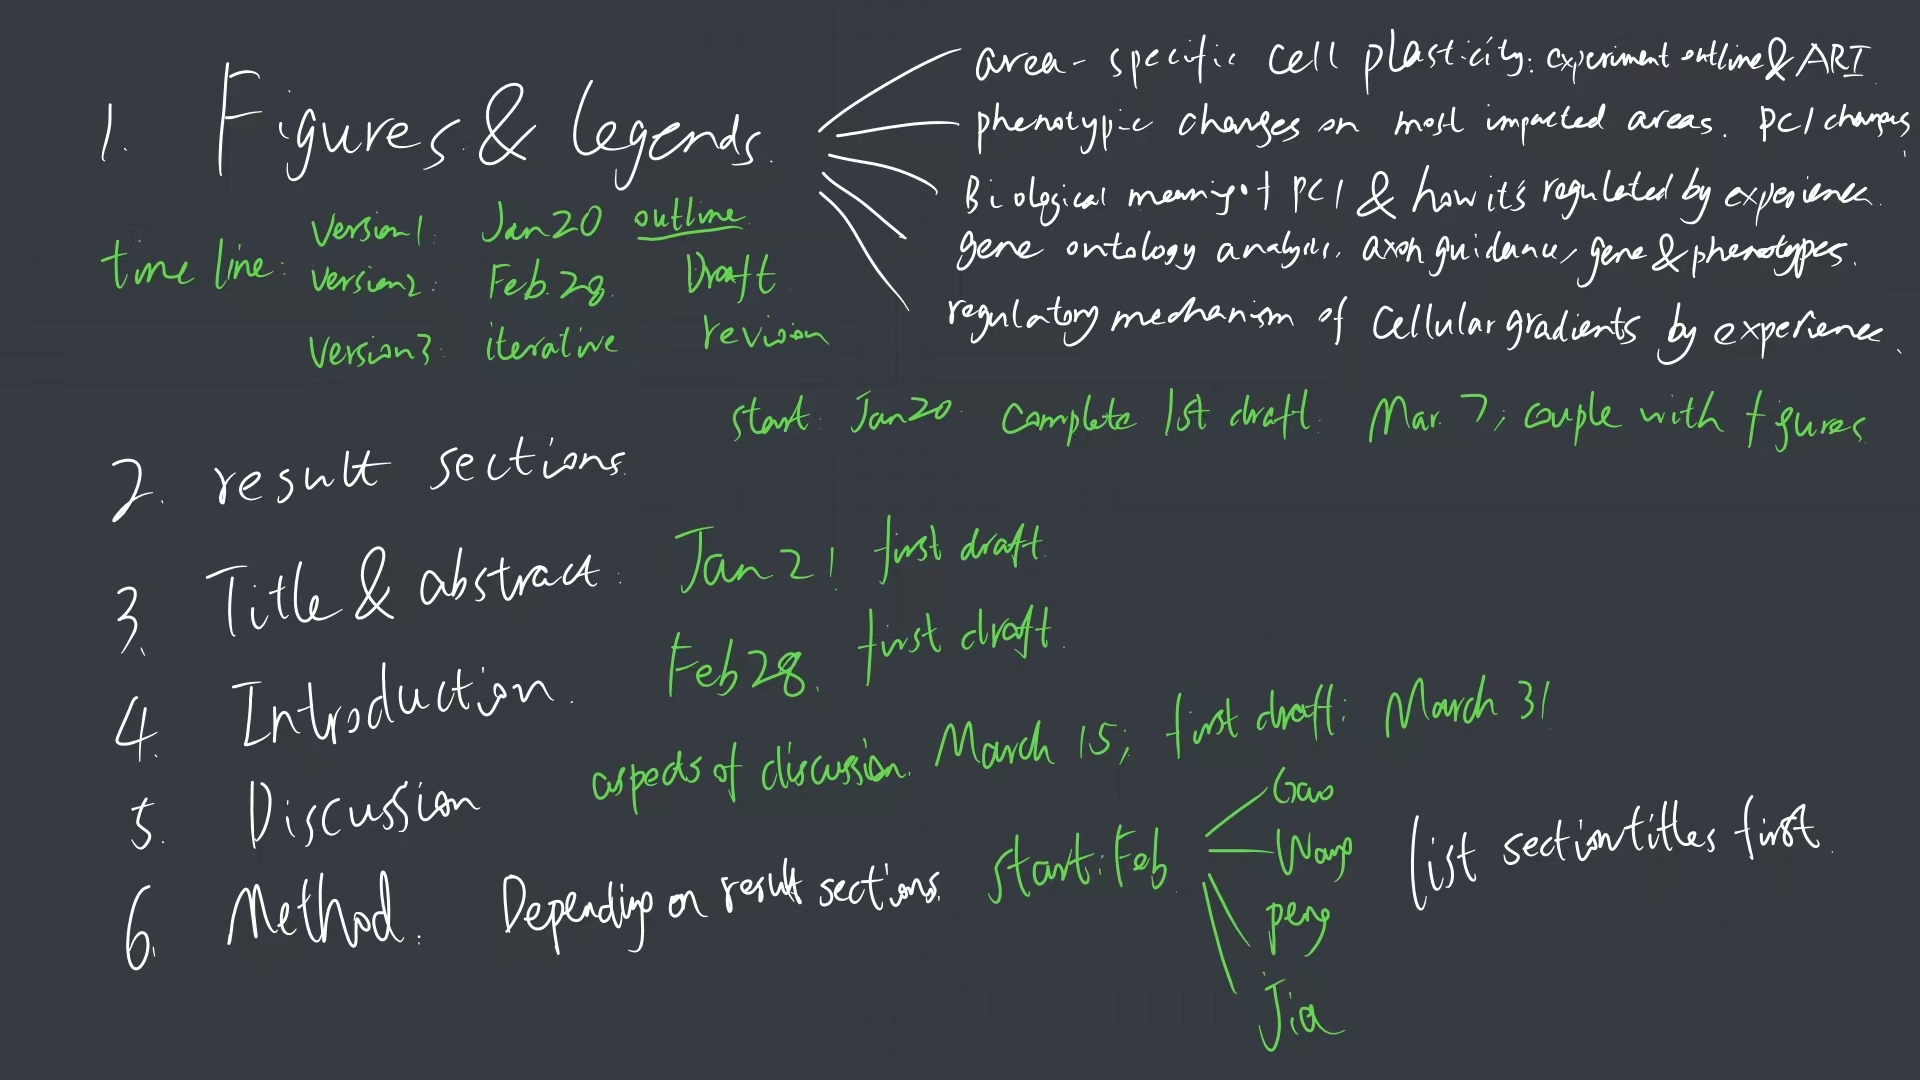 1. Figures & legends.
area-specific cell plasticity: experiment outline & ARI
phenotypic changes on most impacted areas. PC1 changes,
Biological meaning of PC1 & how it's regulated by experience.
gene ontology analysis, axon guidance, gene & phenotypes.
regulatory mechanism of cellular gradients by experience.
time line:
Version1: Jan 20 outline
Version2: Feb. 28. Draft
Version3: iterative revision
start: Jan 20. Complete 1st draft: Mar. 7; couple with figures
2. result sections.
3. Title & abstract: Jan 21. first draft.
4. Introduction. Feb 28. first draft.
5. Discussion aspects of discussion. March 15; first draft: March 31
6. Method: Depending on result sections. start: Feb.
Gao
Wang
peng
Jia
list section titles first.